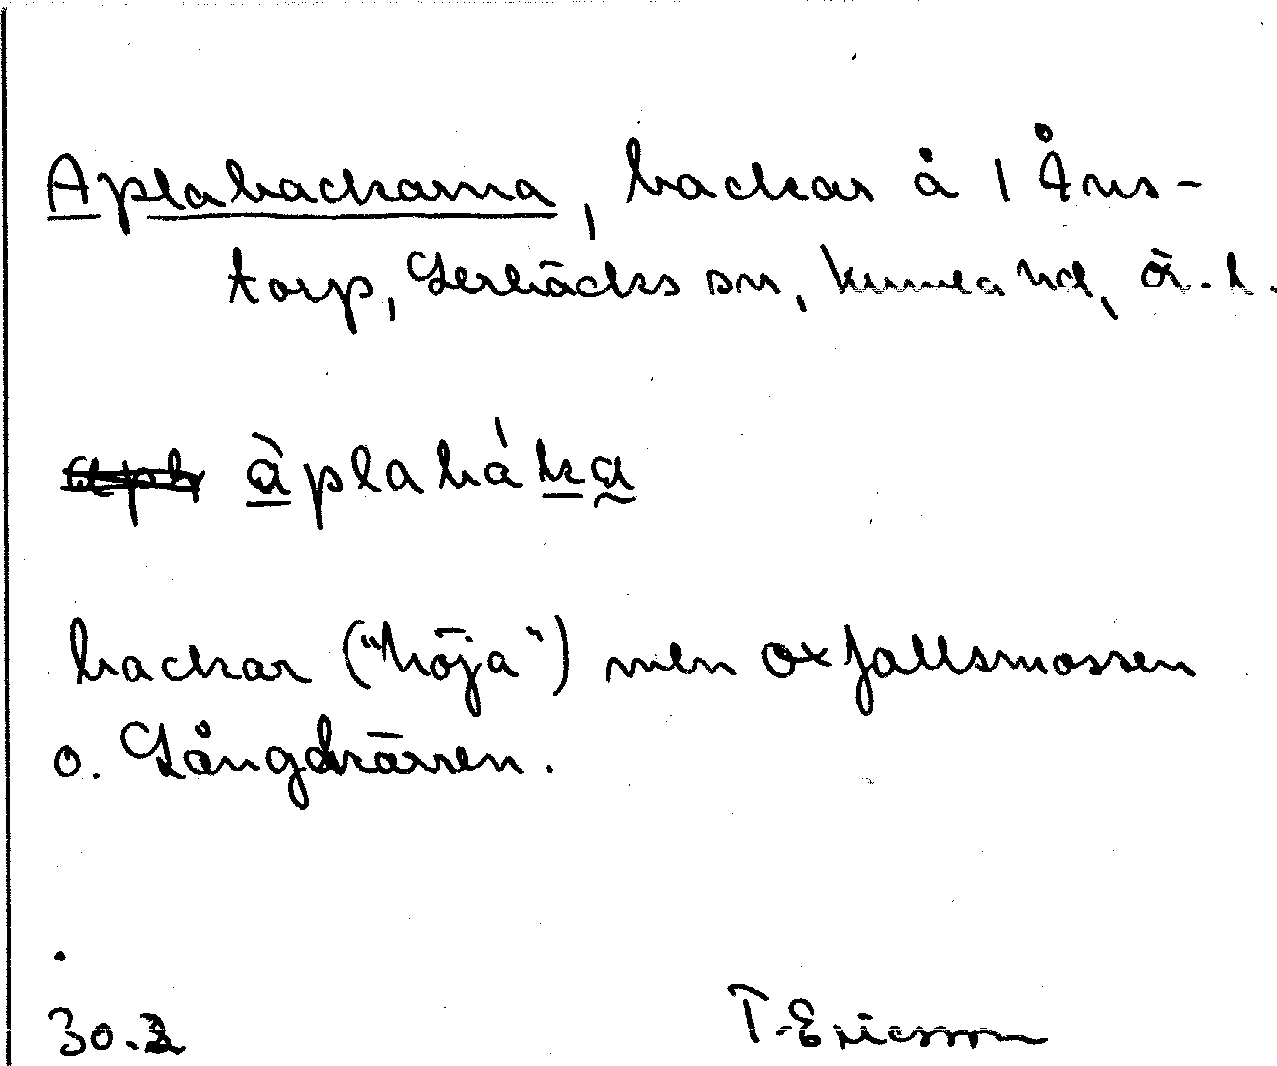 Aplabackarna, backar å 1 Åns-
torp, Lerbäcks sn, Kumla hd, Ör. l.
àplabáka
backar ("höja") mln Oxfallsmossen
o. Långkärren.
30.2
T. Ericsson